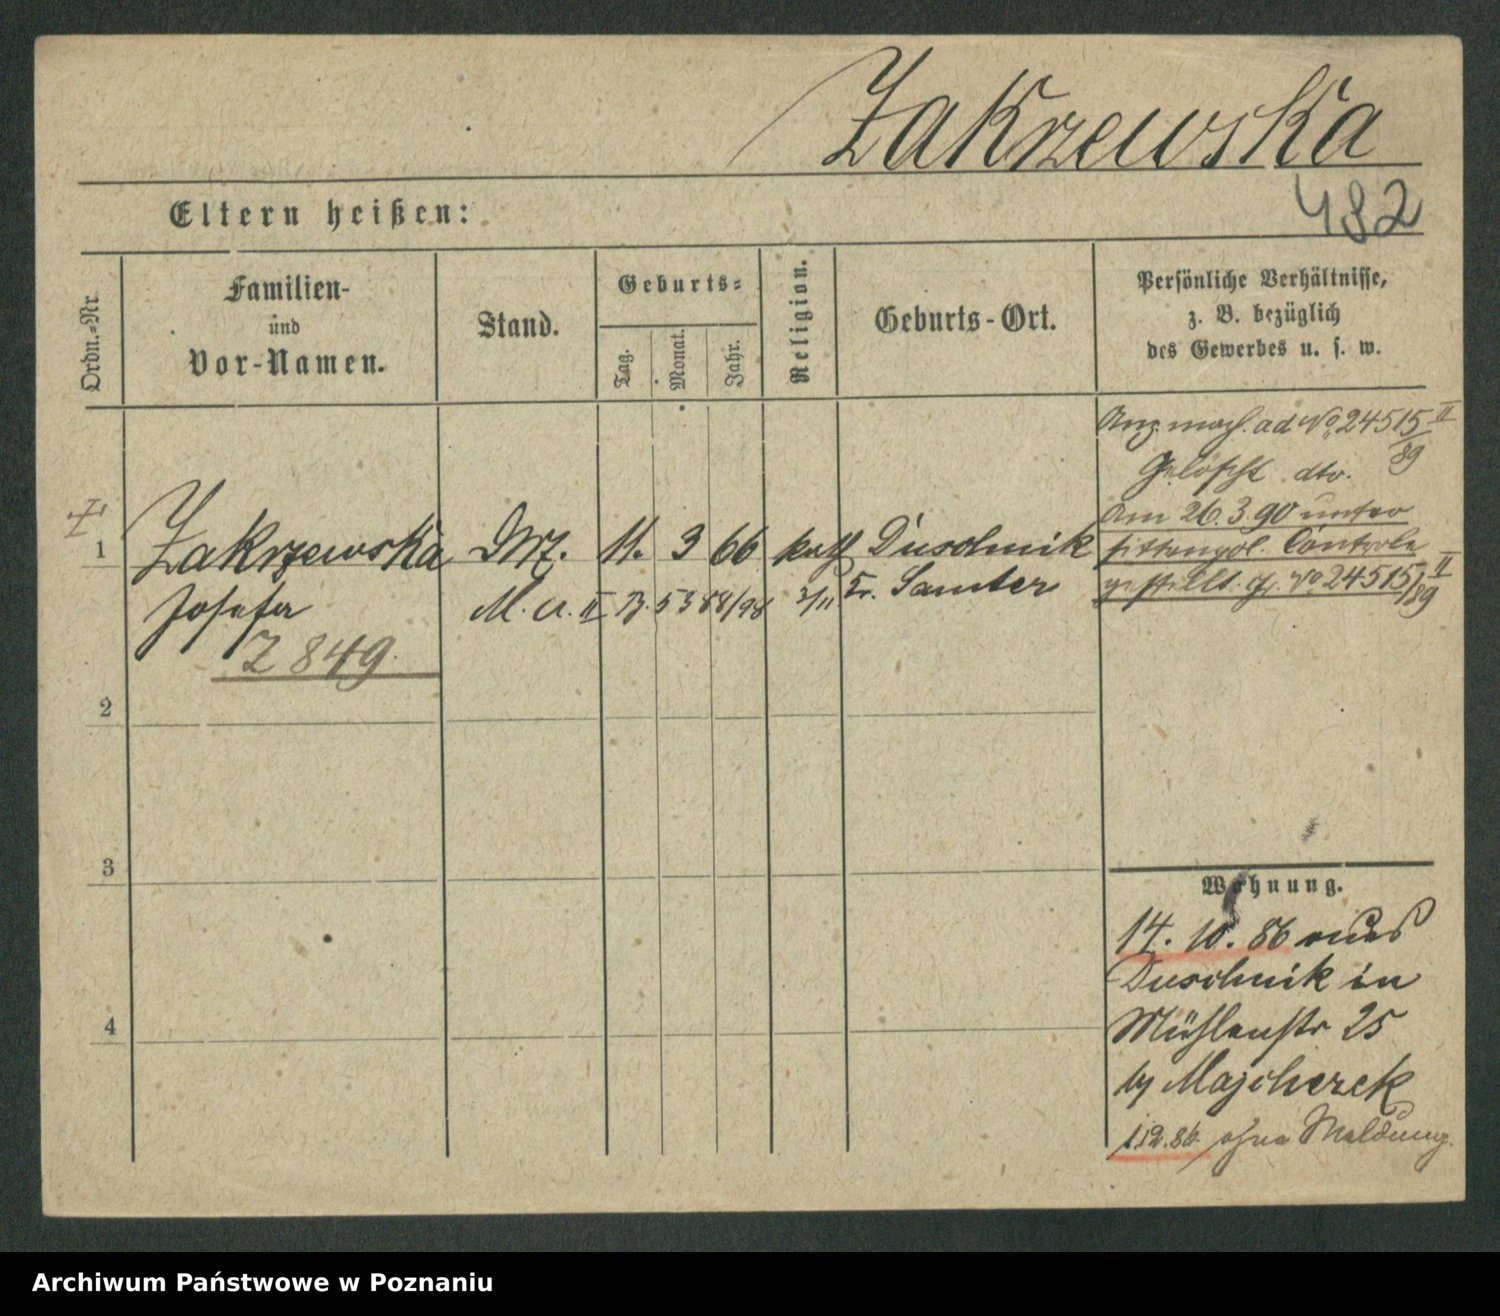 Zakrzewska
492
Eltern heißen:
Ordn.=Nr.
Familien-
und
Vor-Namen.
Stand.
Geburts=
Tag.
Monat.
Jahr.
Religion.
Geburts-Ort.
Persönliche Verhältnisse,
z. B. bezüglich
des Gewerbes u. s. w.
ad No 24515 II
89
Gelöscht dto.
Am 26.3.90 unter
sittenpol. Controle
gestellt. No 24515 II/89
1 Zakrzewska 11. 3 66 kath Duschnik
Josefa M. a. II B. 53 88/98 Kr. Samter
Z 849.
2
3
4
Wohnung.
14. 10. 86 aus
Duschnik in
Mühlenstr 25
by Majcherek
1.12.86. ohne Meldung.
Archiwum Państwowe w Poznaniu